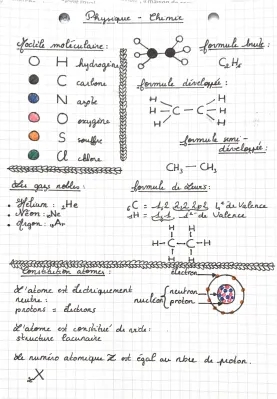 Physique - Chimie
Modèle moléculaire :
O H hydrogène
C carbone
N azote
O oxygène
S soufre
Cl chlore
formule brute :
C₂H₆
formule développée :
H H
H - C - C - H
H H
formule semi-développée :
CH₃ — CH₃
Les gaz nobles :
• Hélium : ₂He
• Néon : Ne
• Argon : Ar
formule de Lewis :
₆C = 1s2 2s2 2p2 4e⁻ de Valence
₁H = 1s1 1e⁻ de Valence
H H
H-C-C-H
H H
Constitution atomes :
électron
nucléon { neutron
proton
L'atome est électriquement
neutre :
protons = électrons
L'atome est constitué de vide :
structure lacunaire
Le numéro atomique Z est égal au nbre de proton.
X